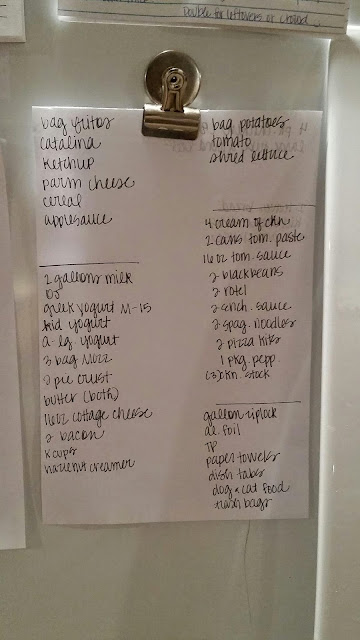 Double for leftovers or
bag fritos
catalina
ketchup
parm cheese
cereal
applesauce
2 gallons milk
OJ
greek yogurt M-15
kid yogurt
a-lg. yogurt
3 bag mozz
2 pie crust
butter (both)
16oz cottage cheese
2 bacon
K cups
hazelnut creamer
bag potatoes
tomato
shred lettuce
4 cream of ckn
2 cans tom. paste
16oz tom. sauce
2 black beans
2 rotel
2 ench. sauce
2 spag. noodles
2 pizza kits
1 pkg. pepp.
(3) ckn. stock
gallon ziplock
al. foil
TP
paper towels
dish tabs
dog & cat food
trash bags